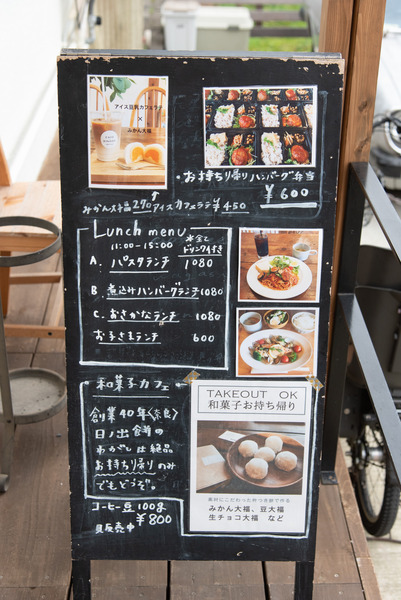 アイス豆乳カフェラテ
×
みかん大福
・お持ち帰りハンバーグ弁当
¥600
みかん大福270 アイスカフェラテ¥450
Lunch menu
11:00-15:00
※全て
ドリンク付き
A. パスタランチ 1080
B 煮込みハンバーグランチ1080
C. おさかなランチ 1080
お子さまランチ 600
和菓子カフェ
創業40年〈奈良〉
日ノ出餅の
わがしは絶品
お持ち帰りのみ
でもどうぞ。
コーヒー豆100g
¥800
販売中
TAKEOUT OK
和菓子お持ち帰り
素材にこだわった作つき餅で作る
みかん大福、豆大福
生チョコ大福 など